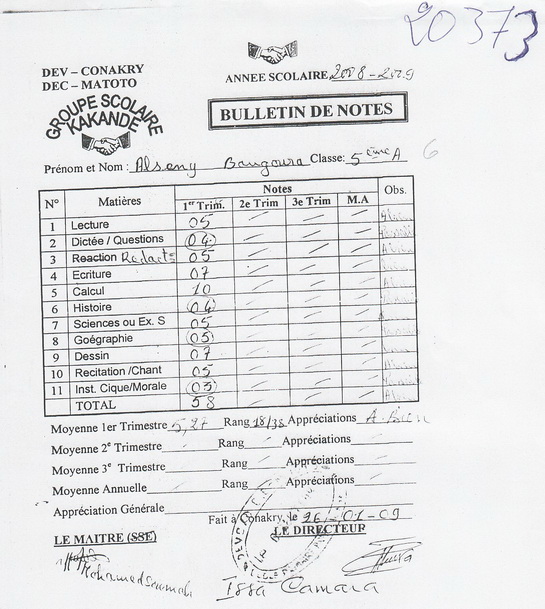 20373
DEV – CONAKRY
DEC – MATOTO
GROUPE SCOLAIRE
KAKANDE
ANNEE SCOLAIRE 2008-2009
BULLETIN DE NOTES
Prénom et Nom : Alseny Bangoura Classe: 5ème A 6
N° Matières Notes Obs.
1er Trim. 2e Trim 3e Trim M.A
1 Lecture 05
2 Dictée / Questions 04
3 Reaction Redact° 05
4 Ecriture 07
5 Calcul 10
6 Histoire 04
7 Sciences ou Ex. S 05
8 Goégraphie 03
9 Dessin 07
10 Recitation /Chant 05
11 Inst. Cique/Morale 03
TOTAL 58
Moyenne 1er Trimestre 5,27 Rang 18/38 Appréciations A. Bien
Moyenne 2e Trimestre Rang Appréciations
Moyenne 3e Trimestre Rang Appréciations
Moyenne Annuelle Rang Appréciations
Appréciation Générale
Fait à Conakry, le 26-01-09
LE MAITRE (SSE) LE DIRECTEUR
Issa Camara